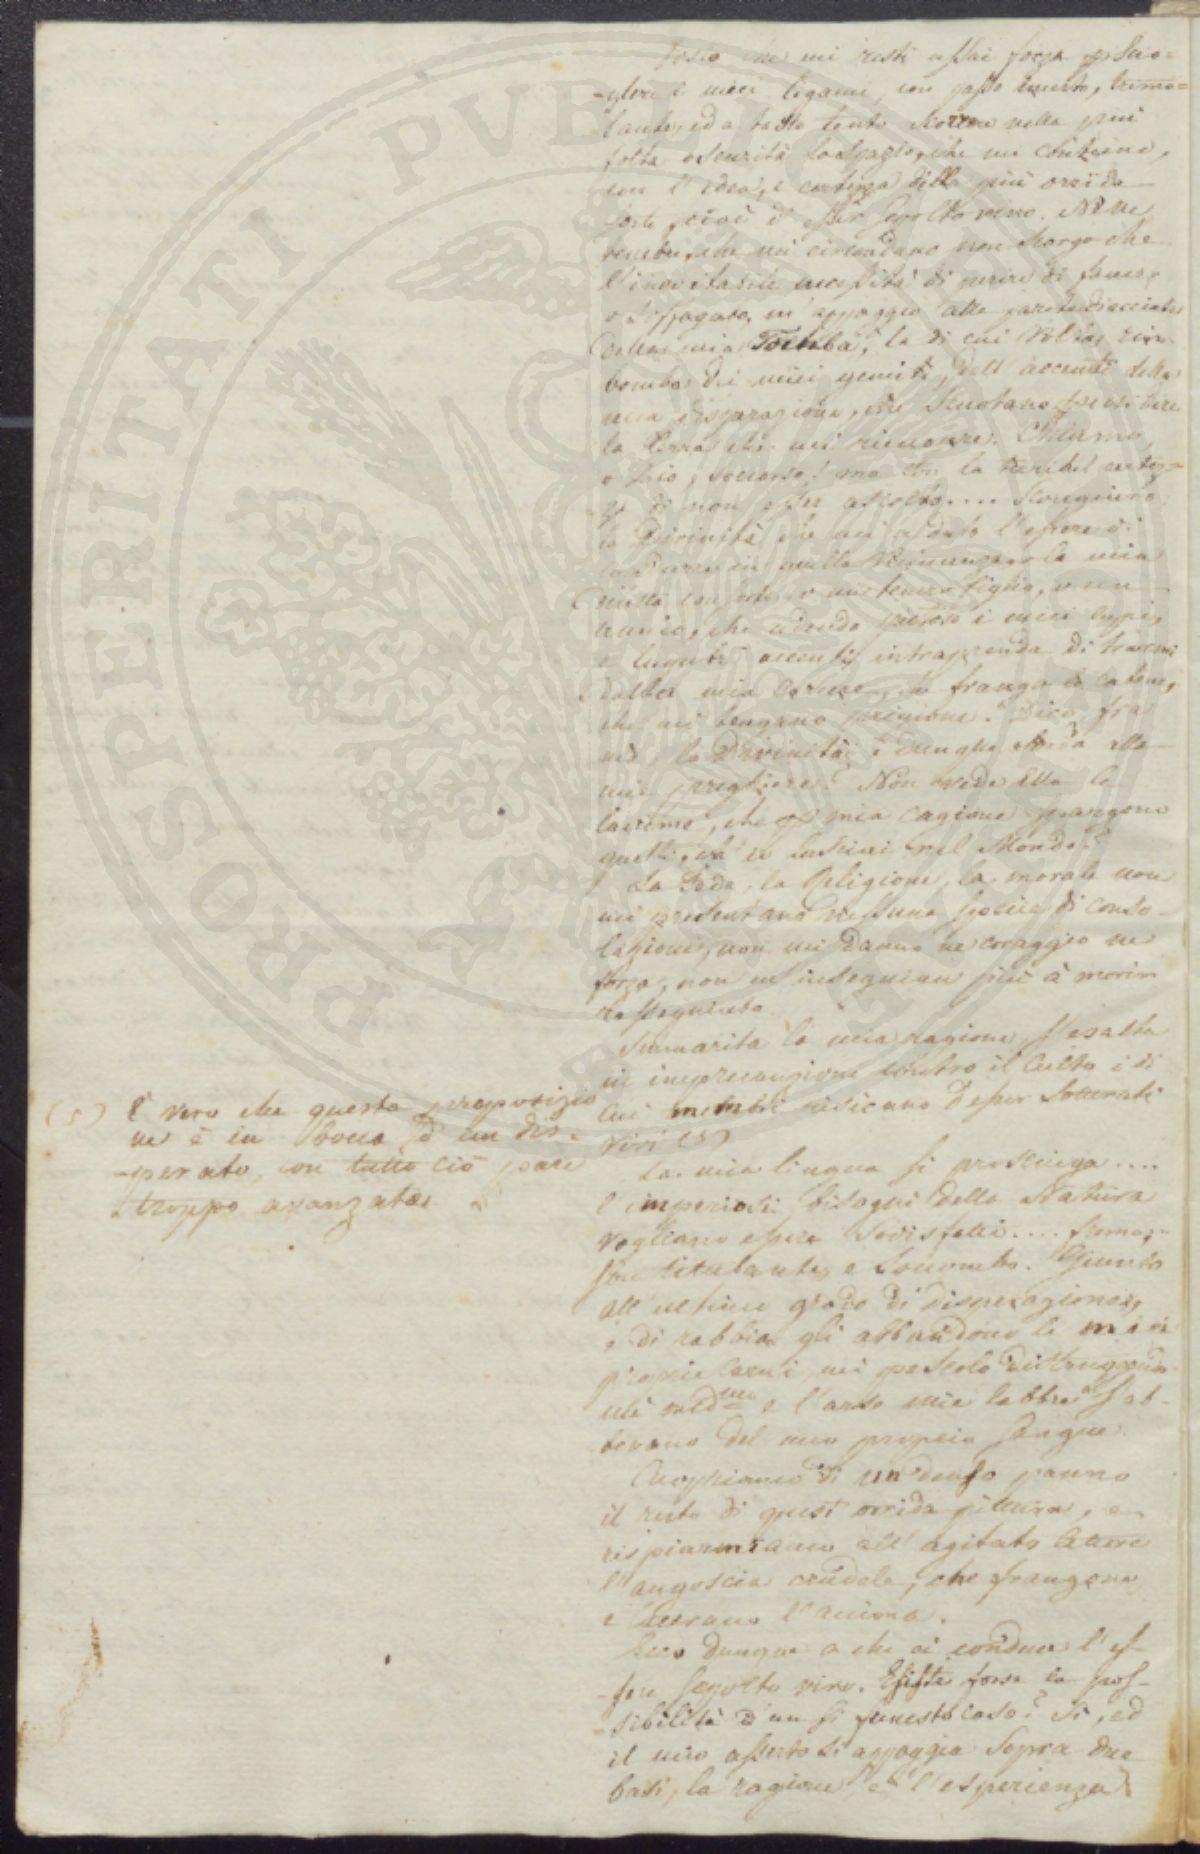 Posto che mi resti assai forza p scio-
-gliere i miei legami, con passo incerto, tremo=
lante, ed a tasto tento scorrere nella più
folta oscurità lo spazio, che mi contiene,
con l'idea, e certezza della più orrida
sorte, cioè d'esser sepolto vivo. Nelle
tenebre, che mi circondano non scorgo che
l'inevitabile necessità di perire di fame,
o soffogato, m'appoggio alle parete diacciate
della mia Tomba, la di cui volta rim-
bomba dei miei gemiti, dell'accenti della
mia disparazione, che scuotano
la Terra che mi ricuopre. Chiamo,
o Dio, soccorso! ma con la terribil certez=
za di non esser ascolto.... Scongiuro
la Divinità che mi ha dato l'essere di
in quelle vicinanze o la mia
o un tenero figlio, o un
amico, che udendo pietoso i miei cupi,
e lugubri accenti, intraprenda di trarmi
dalla mia carcere, in franga le catene,
che mi tengano prigione. Dico, fra
me, la Divinità è dunque sorda alle
mie preghiere? Non vede Ella le
lacrime, che p mia cagione spargono
quelli, che lasciai nel Mondo?
La Fede, la Religione, la morale non
mi presentano nessuna specie di conso-
lazione, non mi danno ne coraggio ne
forza, non m'insegnian più à morir
rassegnato.
Smarrita la mia ragione, s'esalta
in imprecazione contro il Culto i di
Cui membri risicano d'esser sotterrati
vivi (5)
La mia lingua si prosciuga....
l'imperiosi bisogni della Natura
vogliano esser sodisfatti....
son titubante, e soccombo. Giunto
all'ultimo grado di disperazione,
e di rabbia gli abbandono le mie
proprie carni, mi pascolo distruggendo-
mi medmo e l'arse mie labbra s'ab-
beverano del mio proprio sangue.
Cuopriamo di un denso panno
il resto di quest'orrida pittura, e
rispiarmiamo all'agitato Cuore
l'angoscia crudele, che frangono,
e lacerano l'anima.
Ecco dunque a che ci conduce l'es-
-sere sepolto vivo. Esiste forse la pos-
-sibilità d'un sì funesto caso? Sì, ed
il mio asserto si appoggia sopra due
basi, la ragione, e l'esperienza
(5) È vero che questa proposizio
ne è in bocca d'un dis=
-perato, con tutto ciò pare
troppo avanzata.
PROSPERITATI PVBLICAE